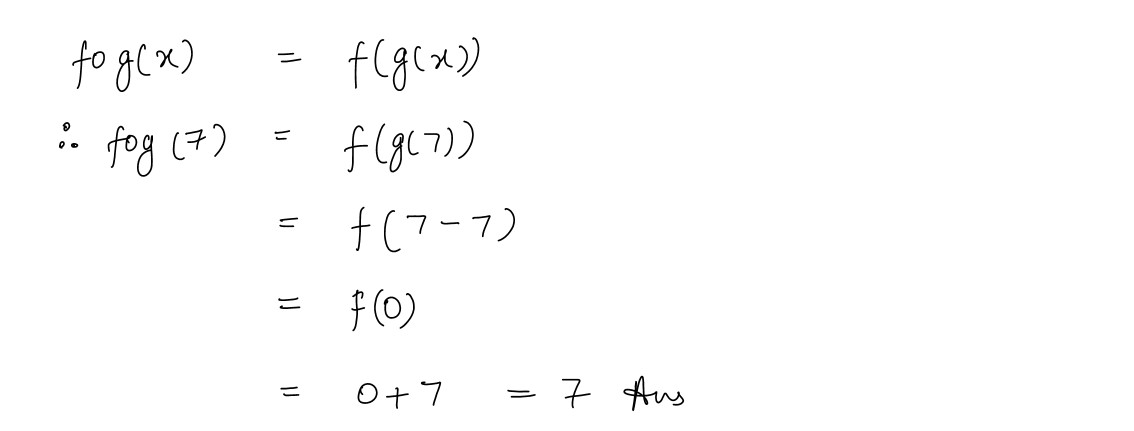 fog(x) = f(g(x))
∴ fog(7) = f(g(7))
= f(7-7)
= f(0)
= 0+7 = 7 Ans